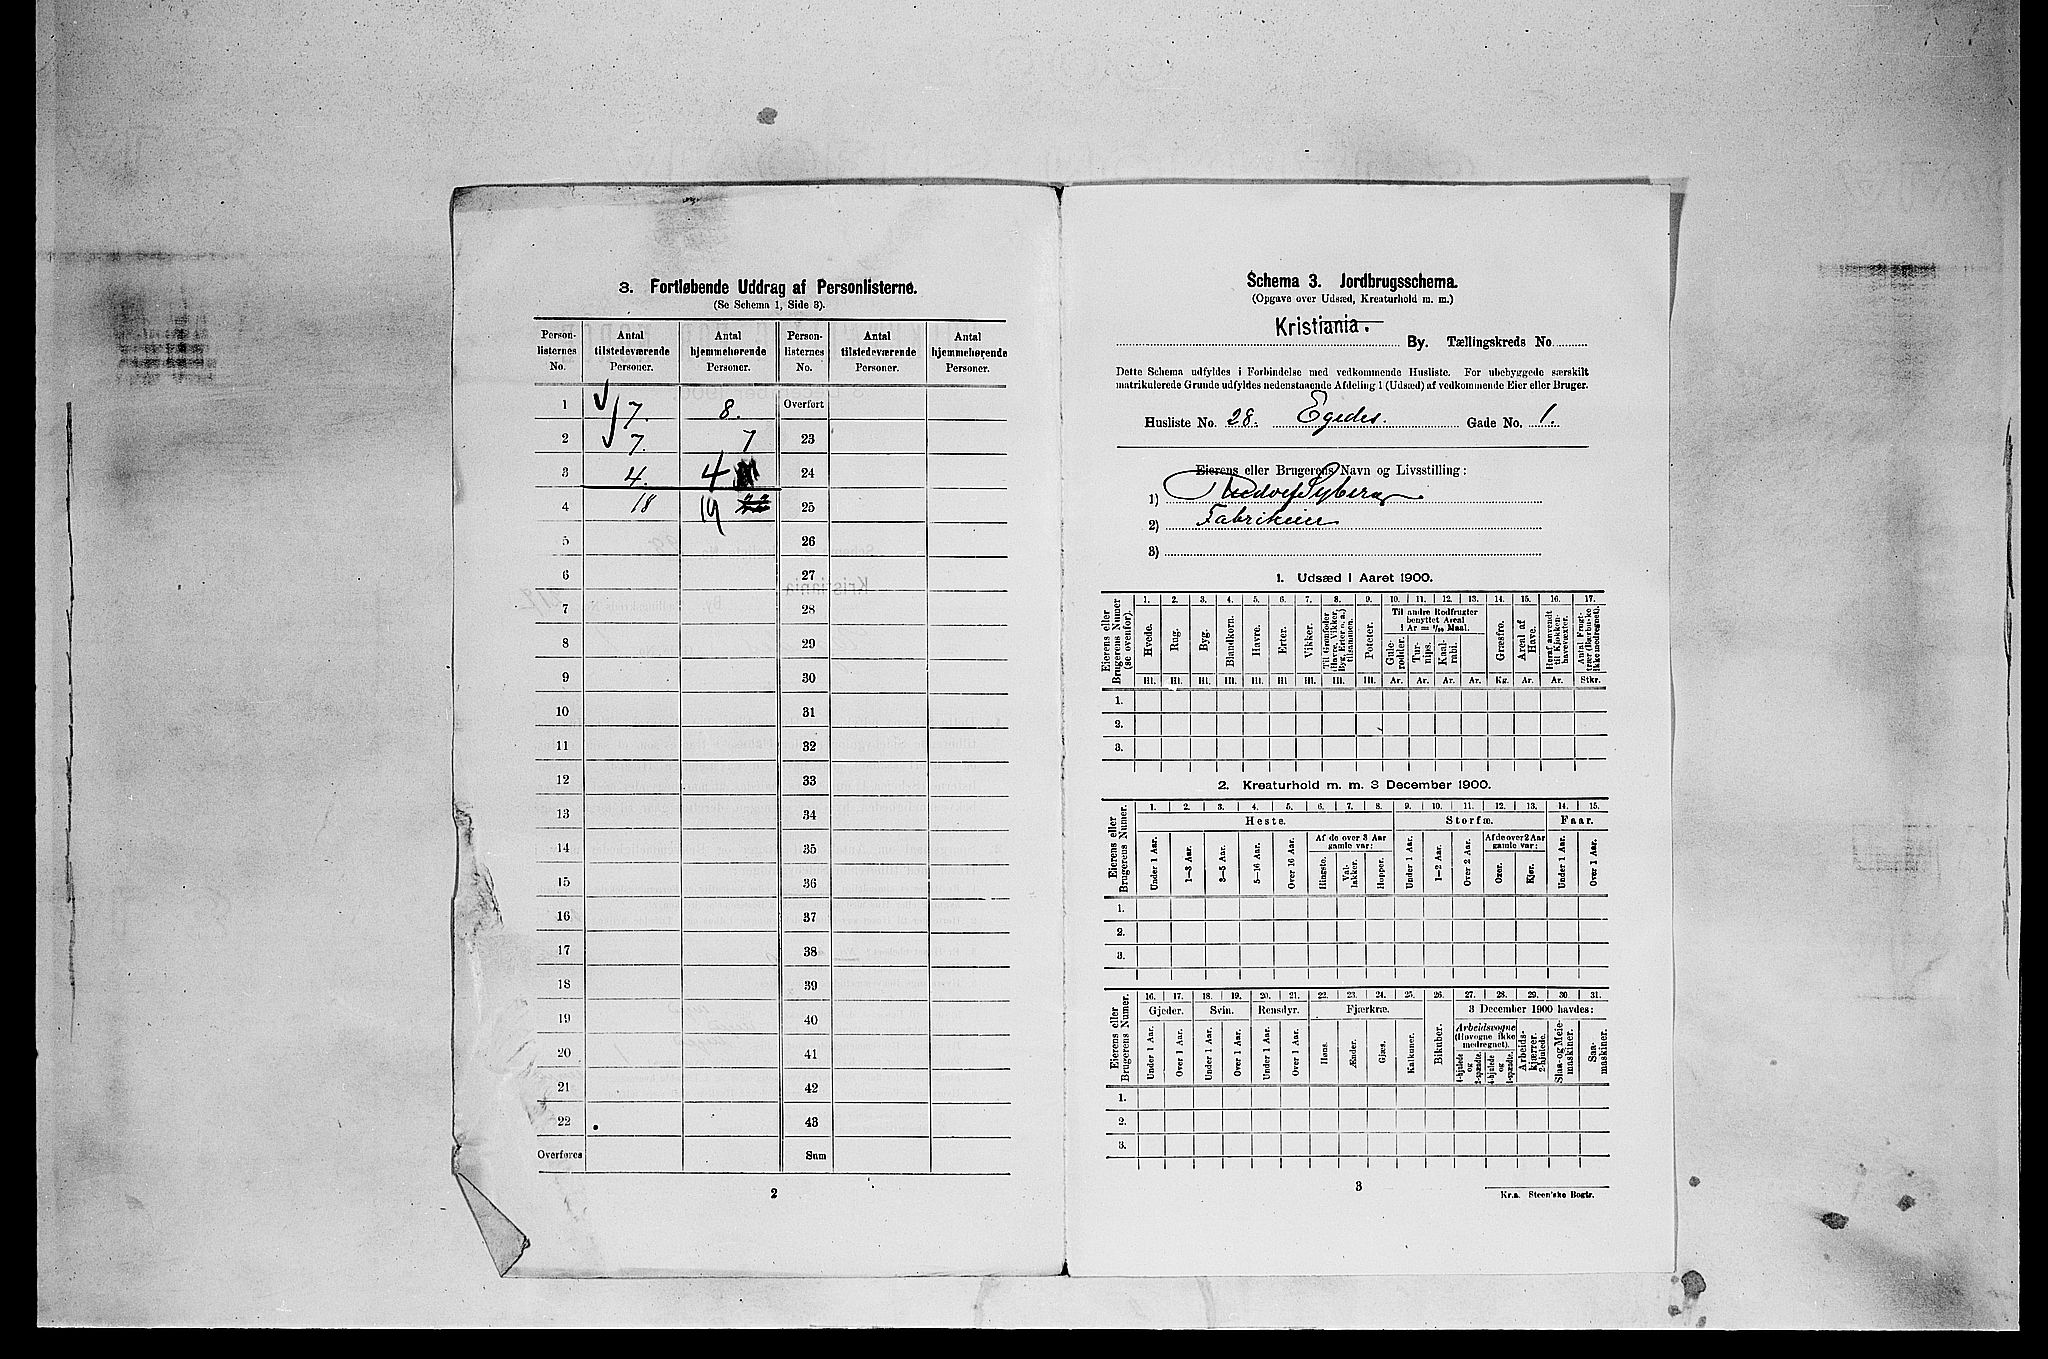 3. Fortløbende Uddrag af Personlisterne.
(Se Schema 1, Side 3).
Person-listernes No. | Antal tilstedeværende Personer. | Antal hjemmehørende Personer. | Person-listernes No. | Antal tilstedeværende Personer. | Antal hjemmehørende Personer.
1 7. 8. Overført
2 7. 7 23
3 4. 4 24
4 18 19 22 25
5 26
6 27
7 28
8 29
9 30
10 31
11 32
12 33
13 34
14 35
15 36
16 37
17 38
18 39
19 40
20 41
21 42
22 43
Overføres Sum
2
Schema 3. Jordbrugsschema.
(Opgave over Udsæd, Kreaturhold m. m.)
Kristiania.
By. Tællingskreds No.
Dette Schema udfyldes i Forbindelse med vedkommende Husliste. For ubebyggede særskilt
matrikulerede Grunde udfyldes nedenstaaende Afdeling 1 (Udsæd) af vedkommende Eier eller Bruger.
Husliste No. 28. Egedes. Gade No. 1.
Eierens eller Brugerens Navn og Livsstilling:
1) Rudolf Syberg
2) Fabrikeier
3)
1. Udsæd i Aaret 1900.
Eierens eller Brugerens Numer (se ovenfor).
1. 2. 3. 4. 5. 6. 7. 8. 9. 10. 11. 12. 13. 14. 15. 16. 17.
Hvede. Rug. Byg. Blandkorn. Havre. Erter. Vikker. Til Grønfoder (Havre, Vikker, Byg, Erter o. a.) tilsammen. Poteter.
Til andre Rodfrugter benyttet Areal 1 Ar = 1/10 Maal.
Gule-rødder. Tur-nips. Kaal-rabi. Græsfrø. Areal af Have. Heraf anvendt til Kjøkken-havevæxter. Antal Frugt-trær (Bærbuske ikke medregnet).
Hl. Hl. Hl. Hl. Hl. Hl. Hl. Hl. Hl. Ar. Ar. Ar. Ar. Kg. Ar. Ar. Stkr.
1.
2.
3.
2. Kreaturhold m. m. 3 December 1900.
Eierens eller Brugerens Numer.
1. 2. 3. 4. 5. 6. 7. 8. 9. 10. 11. 12. 13. 14. 15.
Heste. Storfæ. Faar.
Under 1 Aar. 1—3 Aar. 3—5 Aar. 5—16 Aar. Over 16 Aar.
Af de over 3 Aar gamle var:
Hingste. Val-lakker. Hopper.
Under 1 Aar. 1—2 Aar. Over 2 Aar.
Af de over 2 Aar gamle var:
Oxer. Kjør.
Under 1 Aar. Over 1 Aar.
1.
2.
3.
Eierens eller Brugerens Numer.
16. 17. 18. 19. 20. 21. 22. 23. 24. 25. 26. 27. 28. 29. 30. 31.
Gjeder. Svin. Rensdyr. Fjærkræ. Bikuber. 3 December 1900 havdes:
Under 1 Aar. Over 1 Aar. Under 1 Aar. Over 1 Aar. Under 1 Aar. Over 1 Aar. Høns. Ænder. Gjæs. Kalkuner.
Arbeidsvogne (Hovogne ikke medregnet).
4-hjulede og 2-spændte. 4-hjulede og 1-spændte.
Arbeids-kjærrer. 2-hjulede. Slaa- og Meie-maskiner. Saa-maskiner.
1.
2.
3.
3
Kr.a. Steen'ske Bogtr.